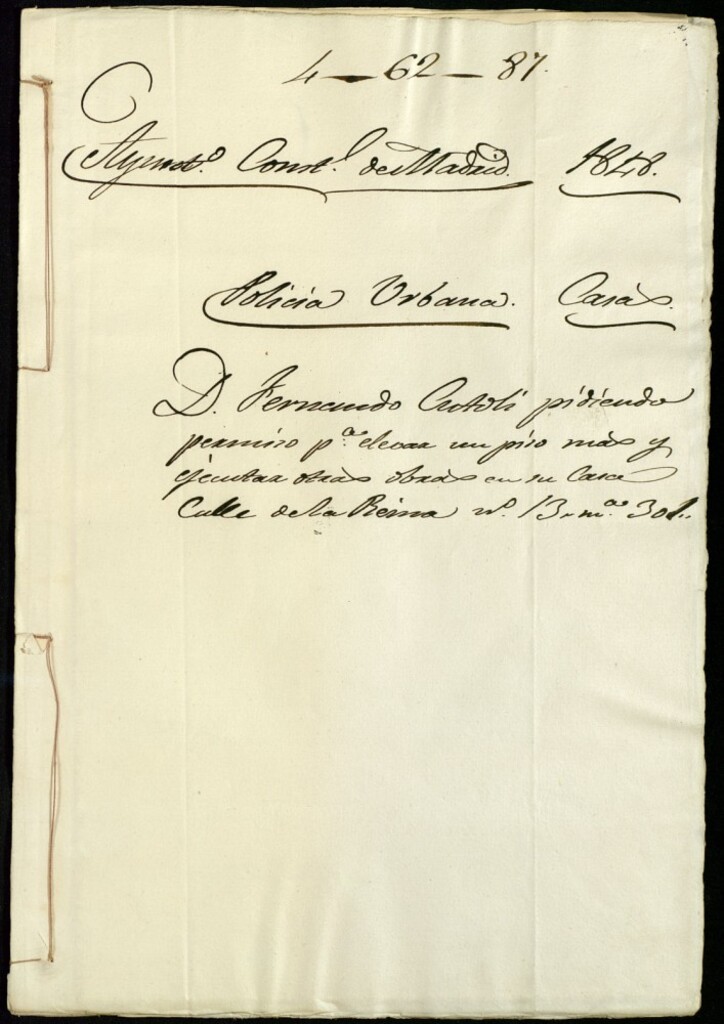 4 — 62 — 87.
Ayunt.º Const.l de Madrid. 1848.
Policia Urbana. Casas.
D. Fernando Cutoli pidiendo
permiso p.a elevar un piso mas y
ejecutar otras obras en su Casa
Calle de la Reina n.º 13 m.a 301.